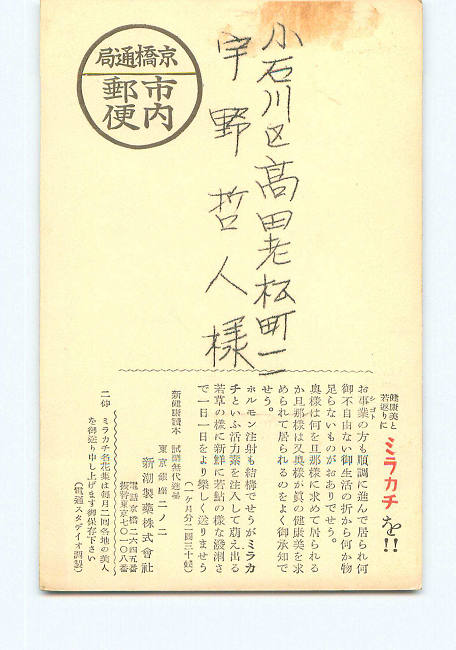 小石川区高田老松町二
宇野哲人様
京橋通局
市内
郵便
健康美と
若返りに
ミラカチを!!
お事業の方も順調に進んで居られ何
シゴト
御不自由ない御生活の折から何か物
足らないものがおありでせう。
奥様は何を旦那様に求めて居られる
か旦那様は又奥様が眞の健康美を求
められて居られるのをよく御承知で
せう。
ホルモン注射も結構でせうがミラカ
チといふ活力素を注入して萠え出る
若草の様に新鮮に若鮎の様な潑溂さ
で一日一日をより樂しく送りませう
(一ヶ月分二圓三十錢)
新健康讀本 試 無代進呈
東京銀座二ノ二
新潮製薬株式會社
電話京橋二六四五番
振替東京七〇一〇八番
二伸 ミラカチ名花集は毎月二回各地の美人
を御送り申し上げます御保存下さい
(電通スタヂイオ調製)